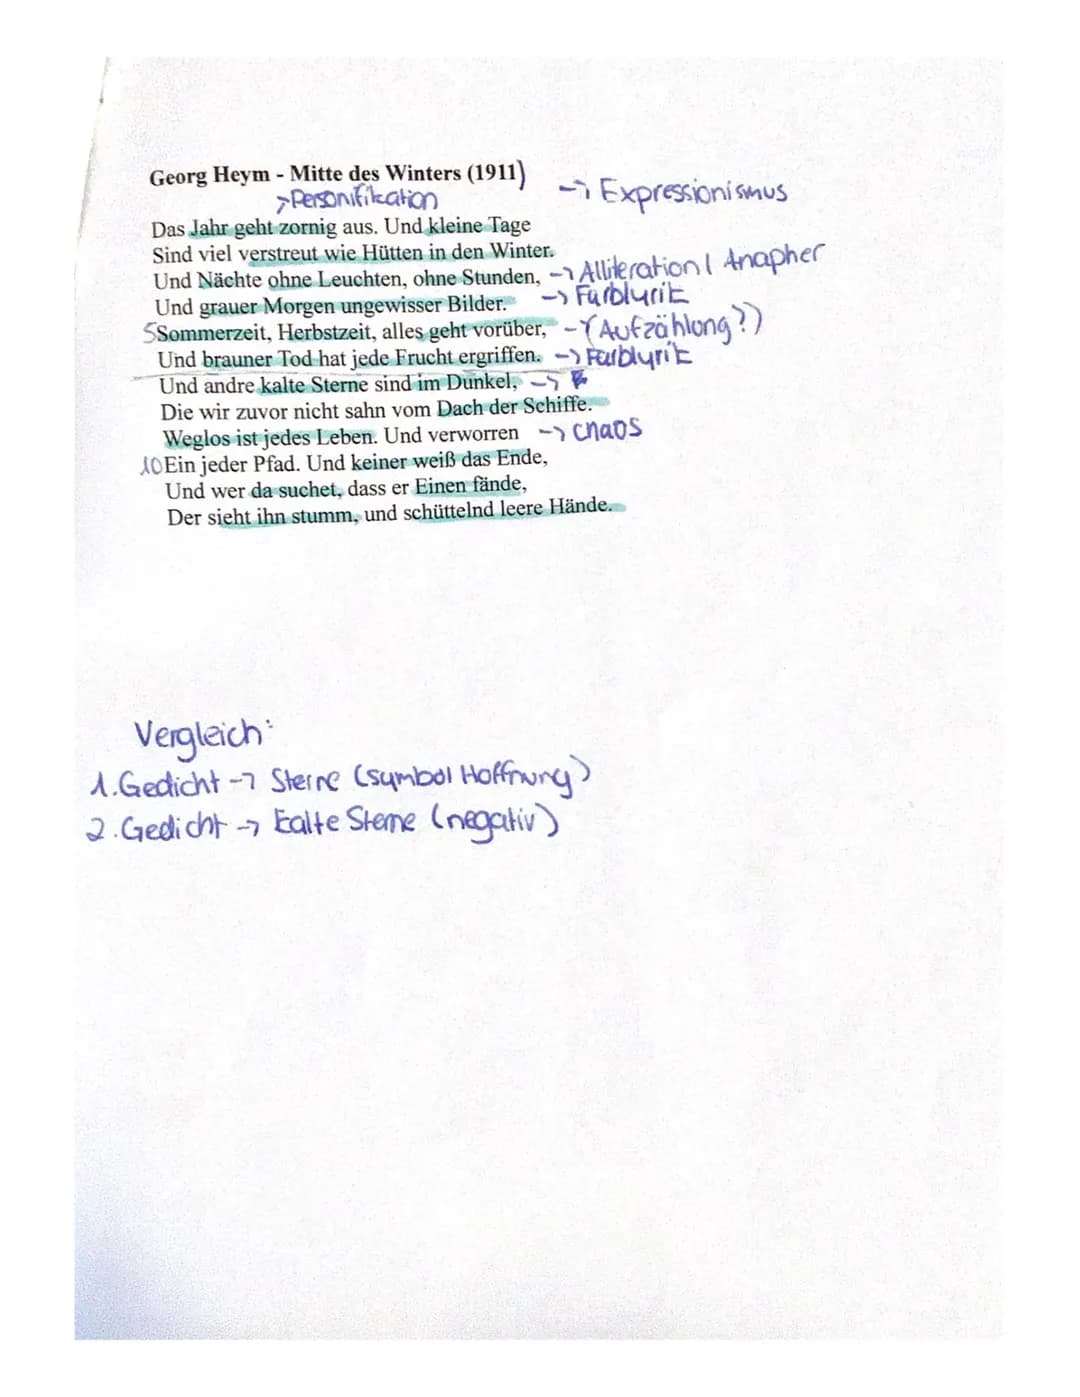 Georg Heym - Mitte des Winters (1911)
→ Expressionismus
→ Personifikation
Das Jahr geht zornig aus. Und kleine Tage
Sind viel verstreut wie Hütten in den Winter.
Und Nächte ohne Leuchten, ohne Stunden, → Alliteration / Anapher
Und grauer Morgen ungewisser Bilder. → Farblyrik
5 Sommerzeit, Herbstzeit, alles geht vorüber, → (Aufzählung?)
Und brauner Tod hat jede Frucht ergriffen. → Farblyrik
Und andre kalte Sterne sind im Dunkel, →
Die wir zuvor nicht sahn vom Dach der Schiffe.
Weglos ist jedes Leben. Und verworren → Chaos
10 Ein jeder Pfad. Und keiner weiß das Ende,
Und wer da suchet, dass er Einen fände,
Der sieht ihn stumm, und schüttelnd leere Hände.
Vergleich:
1. Gedicht → Sterne (symbol Hoffnung)
2. Gedicht → kalte Sterne (negativ)